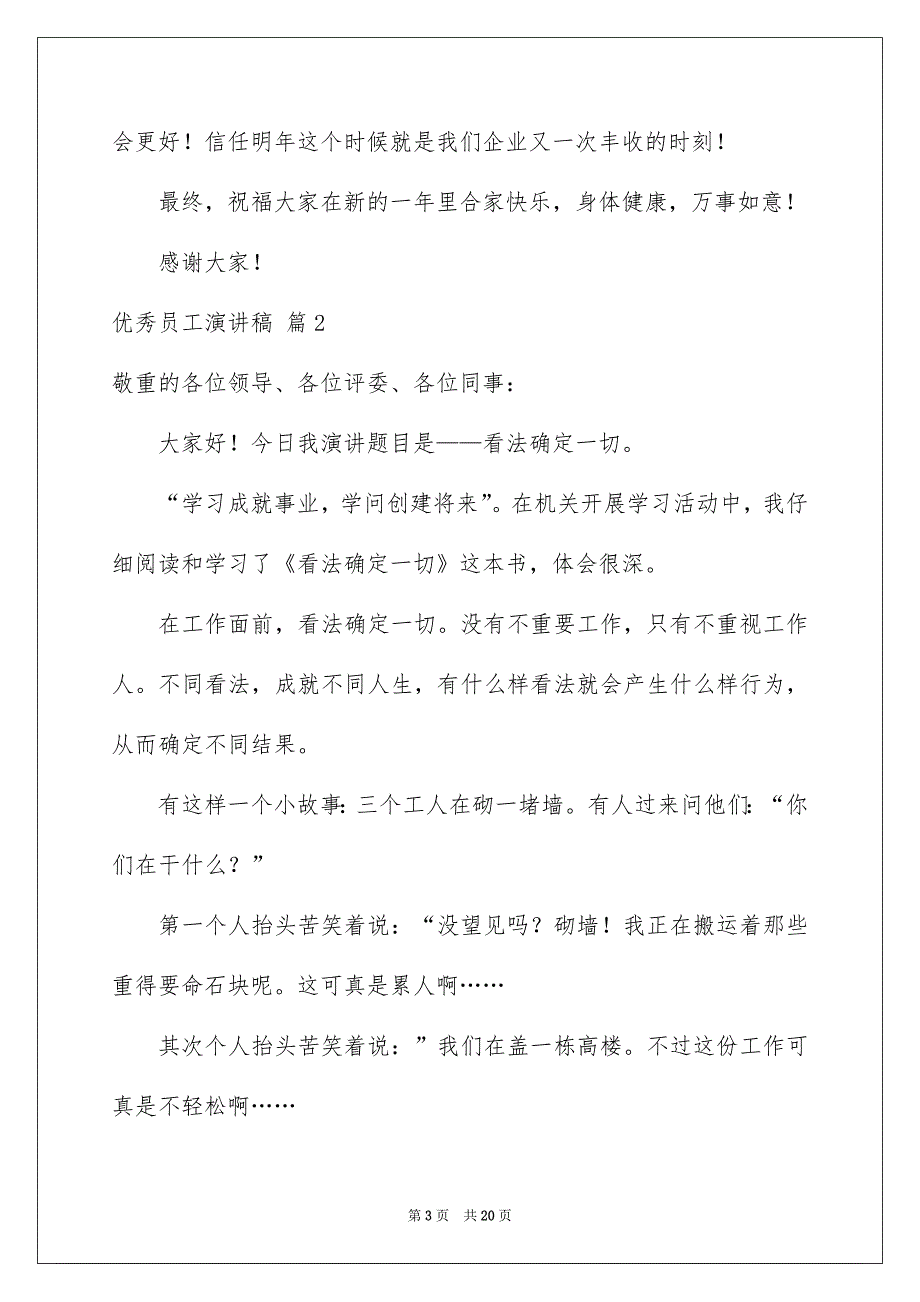 会更好！信任明年这个时候就是我们企业又一次丰收的时刻！
最终，祝福大家在新的一年里合家快乐，身体健康，万事如意！
感谢大家！
优秀员工演讲稿 篇2
敬重的各位领导、各位评委、各位同事：
大家好！今日我演讲题目是——看法确定一切。
“学习成就事业，学问创建将来”。在机关开展学习活动中，我仔
细阅读和学习了《看法确定一切》这本书，体会很深。
在工作面前，看法确定一切。没有不重要工作，只有不重视工作
人。不同看法，成就不同人生，有什么样看法就会产生什么样行为，
从而确定不同结果。
有这样一个小故事：三个工人在砌一堵墙。有人过来问他们：“你
们在干什么？”
第一个人抬头苦笑着说：“没望见吗？砌墙！我正在搬运着那些
重得要命石块呢。这可真是累人啊……
其次个人抬头苦笑着说：”我们在盖一栋高楼。不过这份工作可
真是不轻松啊……
第3页 共20页